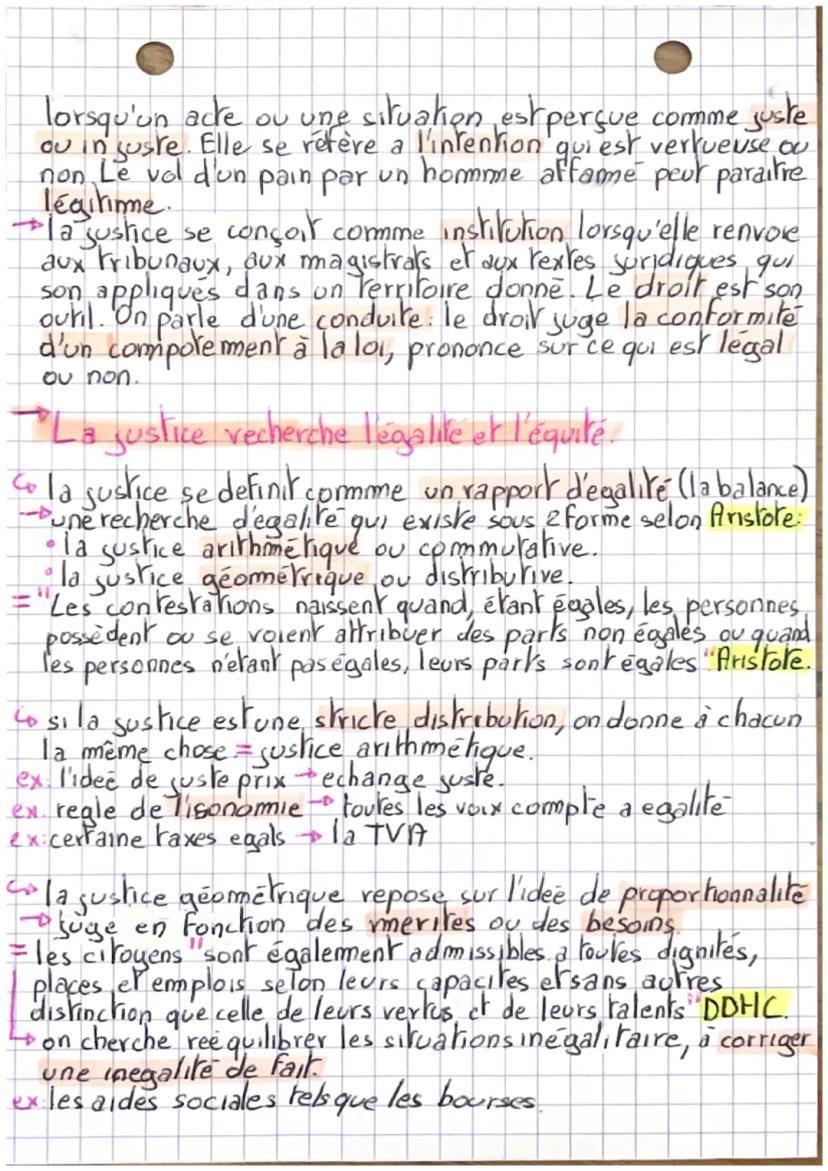 lorsqu'un acte ou une situation est perçue comme juste
ou injuste. Elle se réfère a l'intention qui est vertueuse ou
non. Le vol d'un pain par un hommme affamé peut paraitre
légitime.
→ la justice se conçoit comme institution lorsqu'elle renvoie
aux tribunaux, aux magistrats et aux textes juridiques qui
son appliqués dans un territoire donné. Le droit est son
outil. On parle d'une conduite : le droit juge la conformité
d'un comportement à la loi, prononce sur ce qui est légal
ou non.
→ La justice recherche l'égalité et l'équité.
↪ la justice se definit commme un rapport d'egalité (la balance)
→ une recherche d'égalité qui existe sous 2 forme selon Aristote:
• la justice arithmétique ou commutative.
• la justice géométrique ou distributive.
= "Les contestations naissent quand, étant égales, les personnes
possèdent ou se voient attribuer des parts non égales ou quand
les personnes n'étant pas égales, leurs parts sont égales" Aristote.
↪ si la justice est une stricte distribution, on donne à chacun
la même chose = justice arithmétique.
ex: l'ideé de juste prix → echange juste.
ex. regle de l'isonomie → toutes les voix compte a egalité
ex: certaine taxes egals → la TVA
↪ la justice géométrique repose sur l'ideé de proportionnalité
→ juge en fonction des merites ou des besoins.
= les citoyens "sont également admissibles a toutes dignités,
places et emplois selon leurs capacites et sans autres
distinction que celle de leurs vertus et de leurs talents" DDHC.
↳ on cherche reéquilibrer les situations inégalitaire, à corriger
une inegalité de fait.
ex: les aides sociales tels que les bourses.